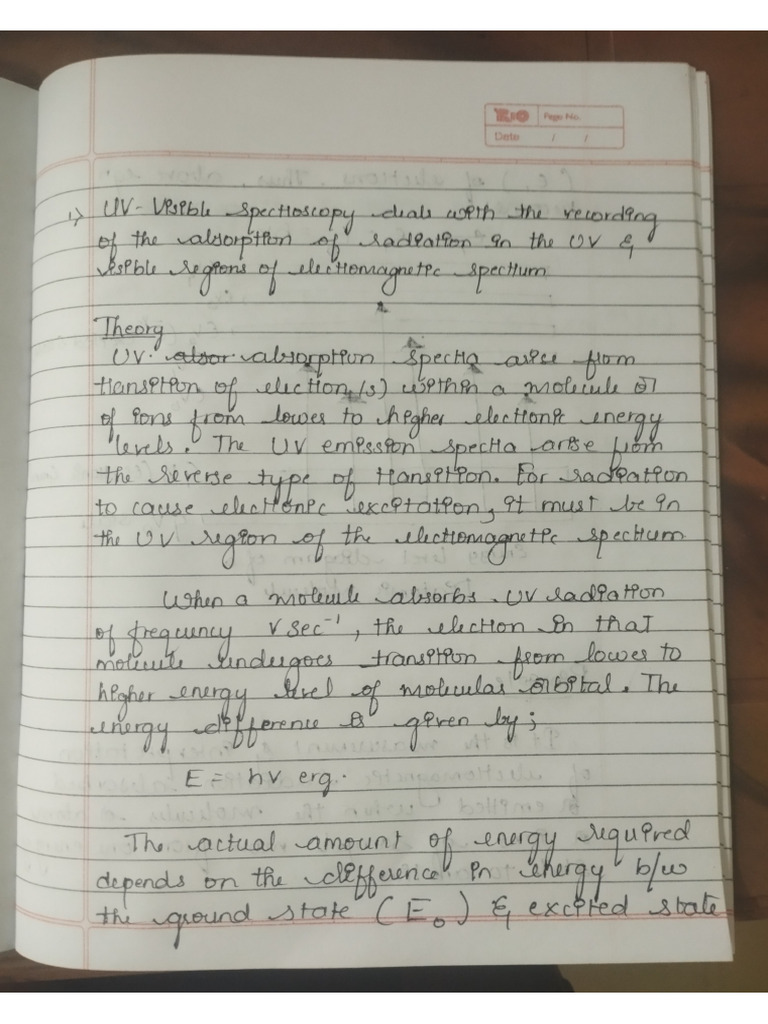 RIO Page No.
Date / /
1) UV-Visible spectroscopy deals with the recording
of the absorption of radiation in the UV &
visible regions of electromagnetic spectrum
Theory
UV. absorption spectra arise from
transition of electron(s) within a molecule or
of ions from lower to higher electronic energy
levels. The UV emission spectra arise from
the reverse type of transition. For radiation
to cause electronic excitation, it must be in
the UV region of the electromagnetic spectrum
When a molecule absorbs UV radiation
of frequency ν sec⁻¹, the electron in that
molecule undergoes transition from lower to
higher energy level of molecular orbital. The
energy difference is given by;
E = hν erg.
The actual amount of energy required
depends on the difference in energy b/w
the ground state (E₀) & excited state